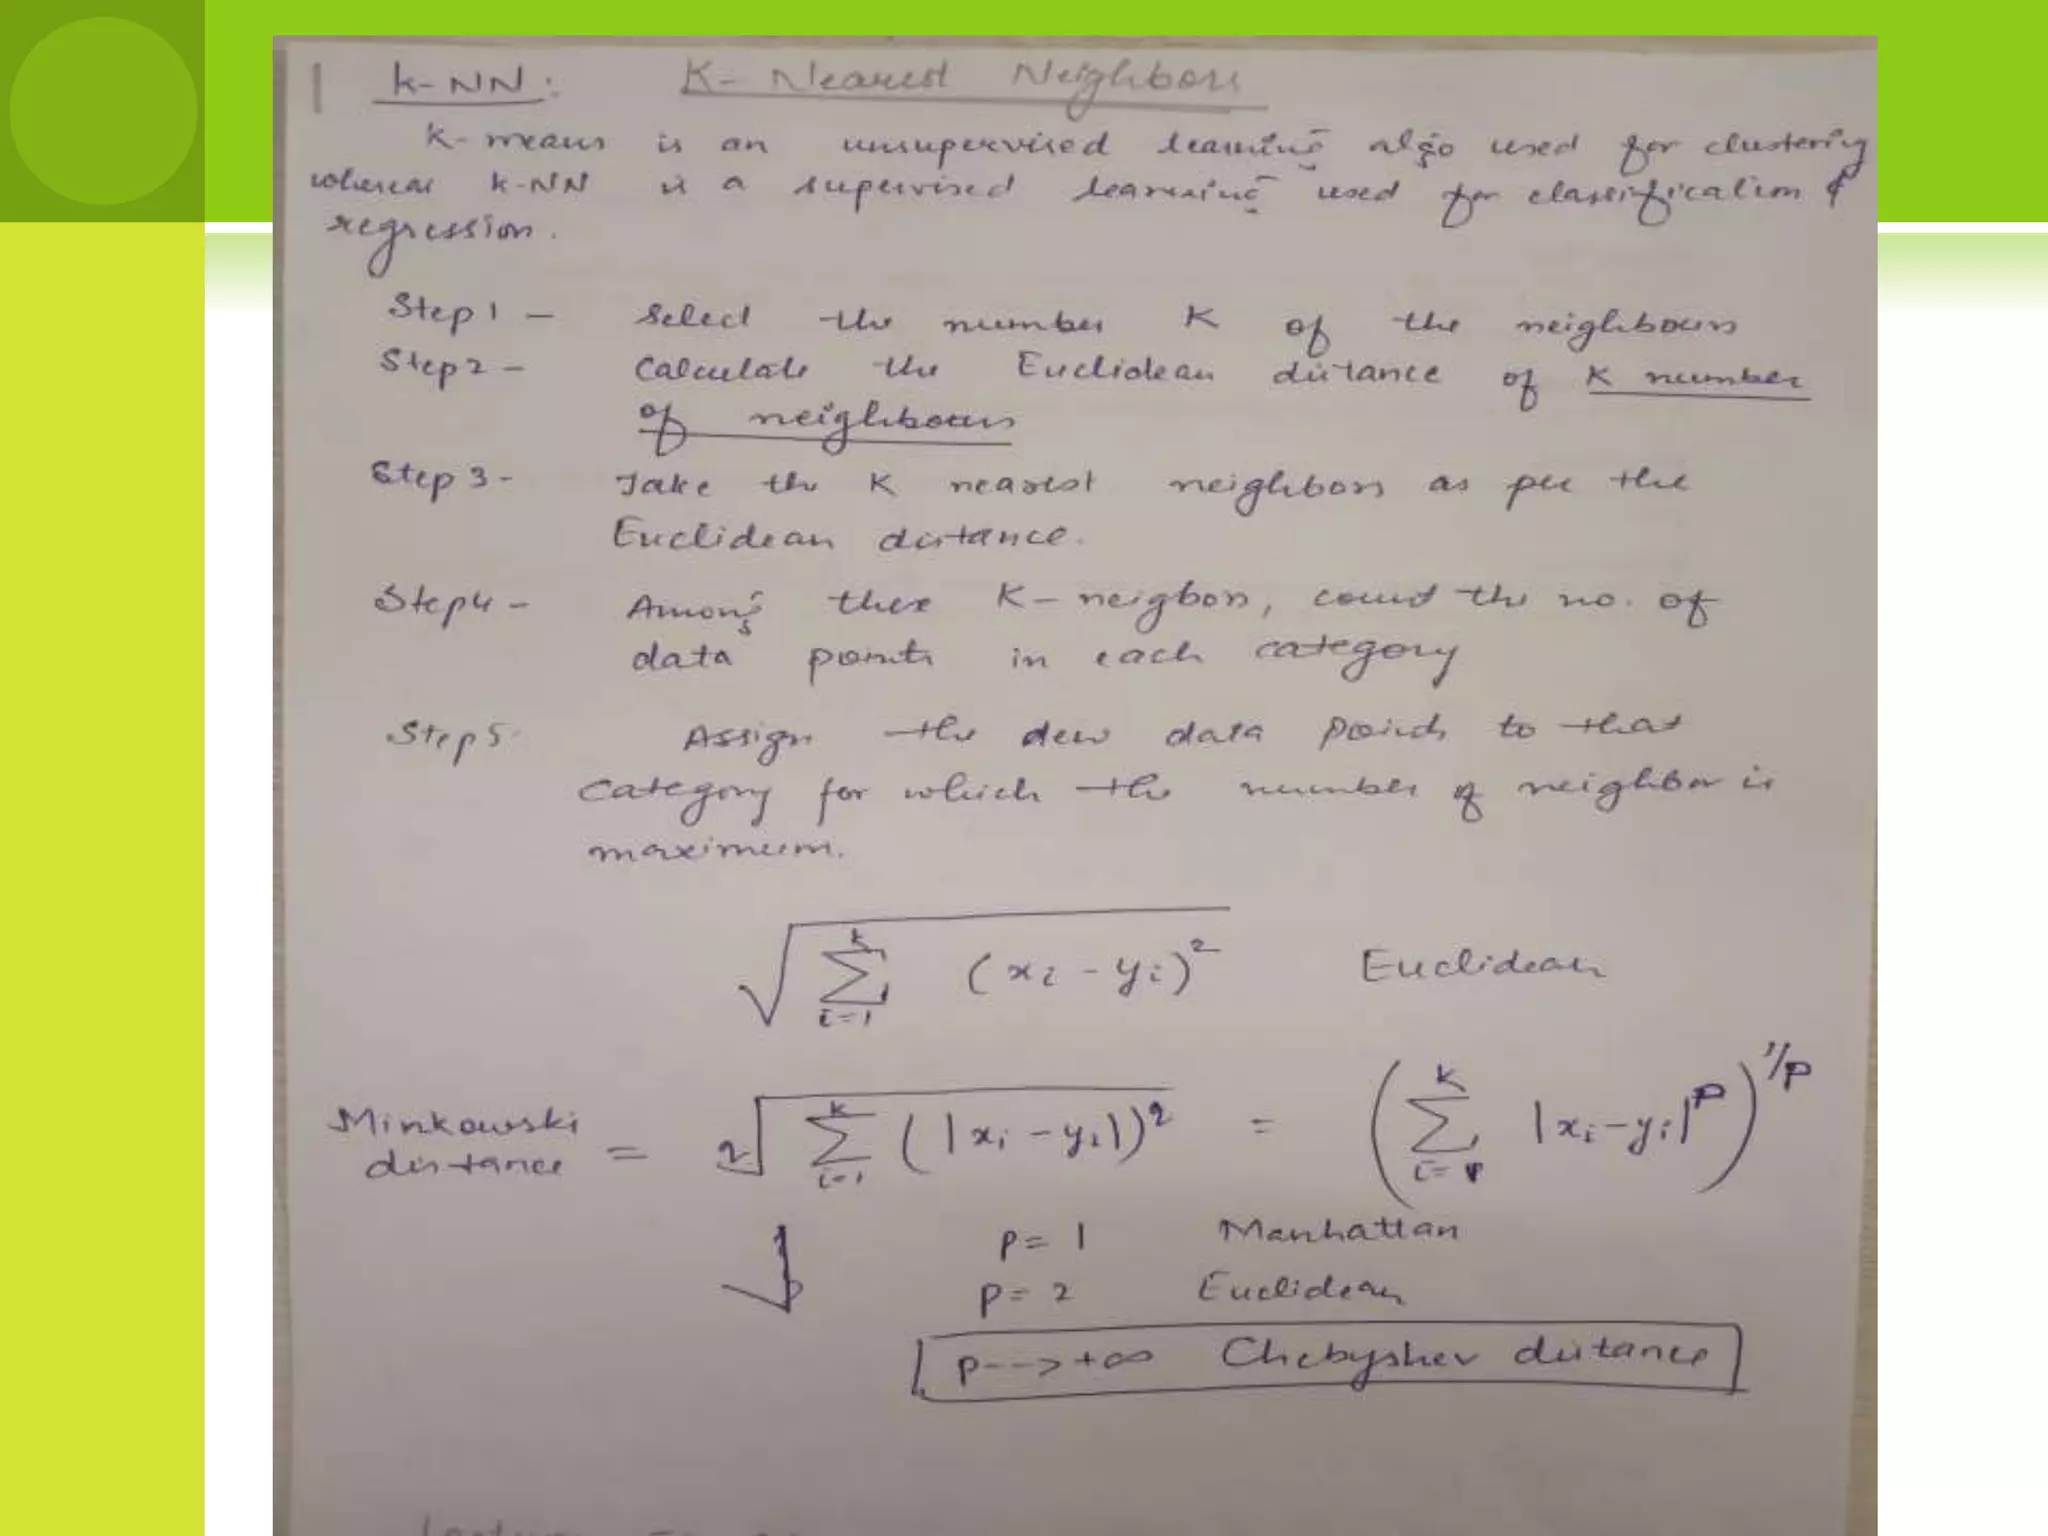 k-NN: K-Nearest Neighbors
k-means is an unsupervised learning algo used for clustering
whereas k-NN is a supervised learning used for classification &
regression.
Step 1 - Select the number K of the neighbours
Step 2 - Calculate the Euclidean distance of K number
of neighbours
Step 3 - Take the K nearest neighbors as per the
Euclidean distance.
Step 4 - Among these K-neigbors, count the no. of
data points in each category
Step 5- Assign the new data points to that
category for which the number of neighbor is
maximum.
√ k ∑ i=1 (xi - yi)² Euclidean
Minkowski distance = 2√ k ∑ i=1 (|xi - yi|)² = ( k ∑ i=1 |xi - yi|^p )^1/p
p = 1 Manhattan
p = 2 Euclidean
p ---> +∞ Chebyshev distance